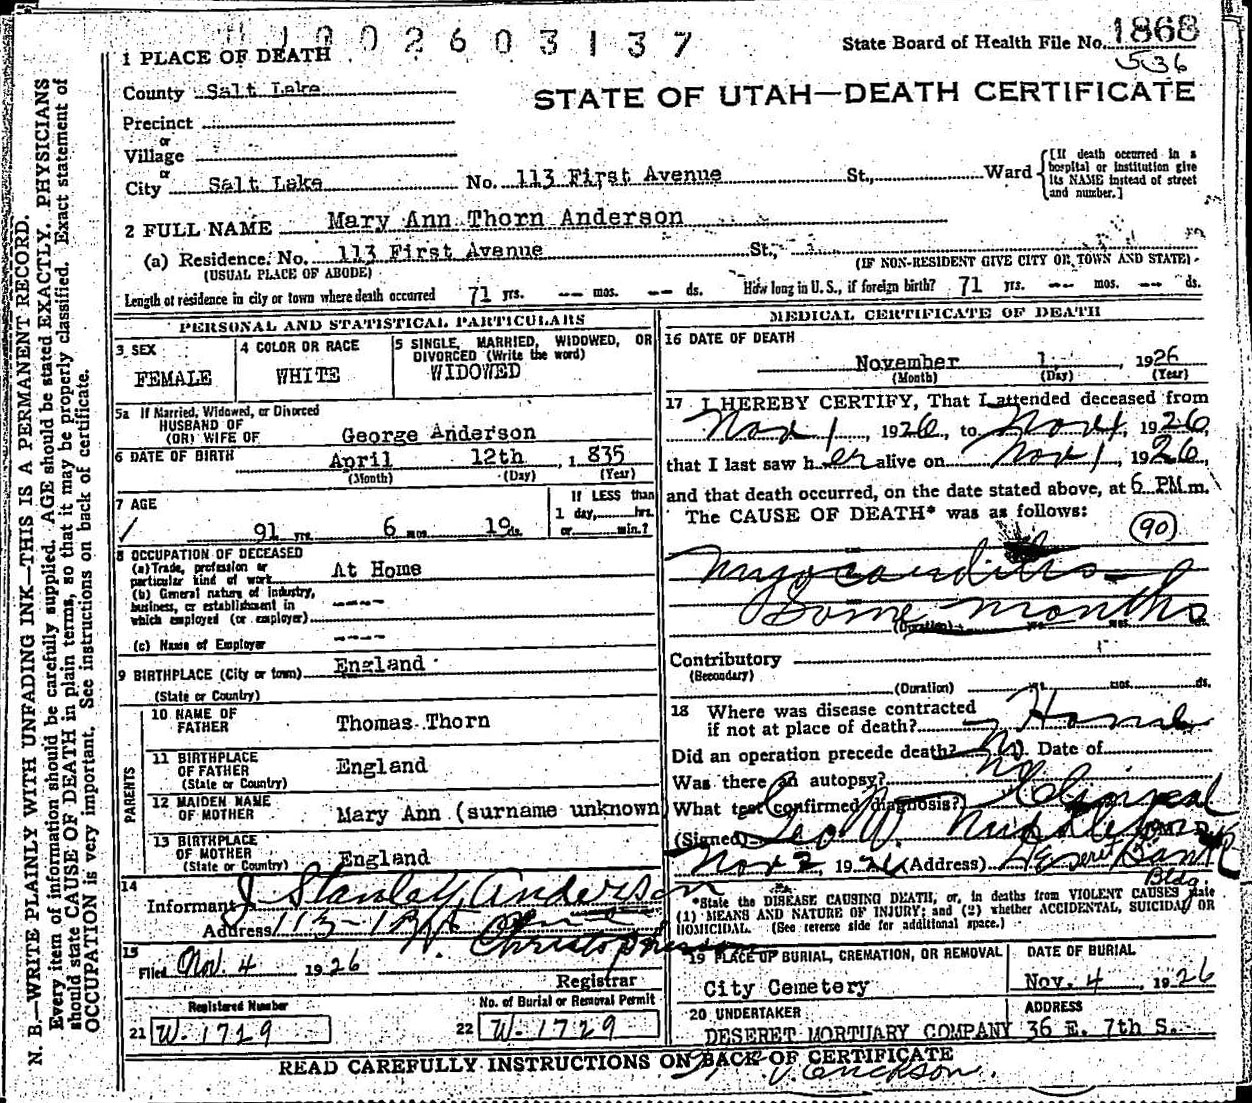 1002603137
State Board of Health File No. 1868
536
1 PLACE OF DEATH
STATE OF UTAH—DEATH CERTIFICATE
County Salt Lake
Precinct
or
Village
or
City Salt Lake No. 113 First Avenue St., Ward [If death occurred in a hospital or institution give its NAME instead of street and number.]
2 FULL NAME Mary Ann Thorn Anderson
(a) Residence. No. 113 First Avenue St.,
(USUAL PLACE OF ABODE) (IF NON-RESIDENT GIVE CITY OR TOWN AND STATE)
Length of residence in city or town where death occurred 71 yrs. -- mos. -- ds. How long in U. S., if foreign birth? 71 yrs. -- mos. -- ds.
PERSONAL AND STATISTICAL PARTICULARS
3 SEX
FEMALE
4 COLOR OR RACE
WHITE
5 SINGLE, MARRIED, WIDOWED, OR
DIVORCED (Write the word)
WIDOWED
5a If Married, Widowed, or Divorced
HUSBAND OF
(OR) WIFE OF George Anderson
6 DATE OF BIRTH April 12th, 1835
(Month) (Day) (Year)
7 AGE
91 yrs. 6 mos. 19 ds.
If LESS than
1 day,......hrs.
or......min.?
8 OCCUPATION OF DECEASED
(a) Trade, profession or
particular kind of work At Home
(b) General nature of industry,
business, or establishment in
which employed (or employer) ----
(c) Name of Employer ----
9 BIRTHPLACE (City or town) England
(State or Country)
PARENTS
10 NAME OF
FATHER Thomas Thorn
11 BIRTHPLACE
OF FATHER England
(State or Country)
12 MAIDEN NAME
OF MOTHER Mary Ann (surname unknown)
13 BIRTHPLACE
OF MOTHER
(State or Country) England
14
Informant J Stanley Anderson
Address 113-1st Ave
15
Filed Nov. 4 1926 W. Christopherson
Registrar
Registered Number
21 W-1729
No. of Burial or Removal Permit
22 W-1729
MEDICAL CERTIFICATE OF DEATH
16 DATE OF DEATH
November 1, 1926
(Month) (Day) (Year)
17 I HEREBY CERTIFY, That I attended deceased from
Nov 1, 1926, to Nov 1, 1926,
that I last saw her alive on Nov 1, 1926,
and that death occurred, on the date stated above, at 6 PM m.
The CAUSE OF DEATH* was as follows:
90
Myocarditis
Some months
(Duration) yrs. mos. ds.
Contributory
(Secondary)
(Duration) yrs. mos. ds.
18 Where was disease contracted
if not at place of death? Home
Did an operation precede death? No. Date of
Was there an autopsy? No
What test confirmed diagnosis? Clinical
(Signed) Leo W. Middleton M. D.
Nov 2, 1926 (Address) Deseret Bank
Bldg.
*State the DISEASE CAUSING DEATH, or, in deaths from VIOLENT CAUSES state
(1) MEANS AND NATURE OF INJURY; and (2) whether ACCIDENTAL, SUICIDAL OR
HOMICIDAL. (See reverse side for additional space.)
19 PLACE OF BURIAL, CREMATION, OR REMOVAL
City Cemetery
DATE OF BURIAL
Nov. 4, 1926
20 UNDERTAKER
DESERET MORTUARY COMPANY
ADDRESS
36 E. 7th S.
READ CAREFULLY INSTRUCTIONS ON BACK OF CERTIFICATE
V. Erickson.
N. B.—WRITE PLAINLY WITH UNFADING INK—THIS IS A PERMANENT RECORD.
Every item of information should be carefully supplied. AGE should be stated EXACTLY. PHYSICIANS
should state CAUSE OF DEATH in plain terms, so that it may be properly classified. Exact statement of
OCCUPATION is very important. See instructions on back of certificate.